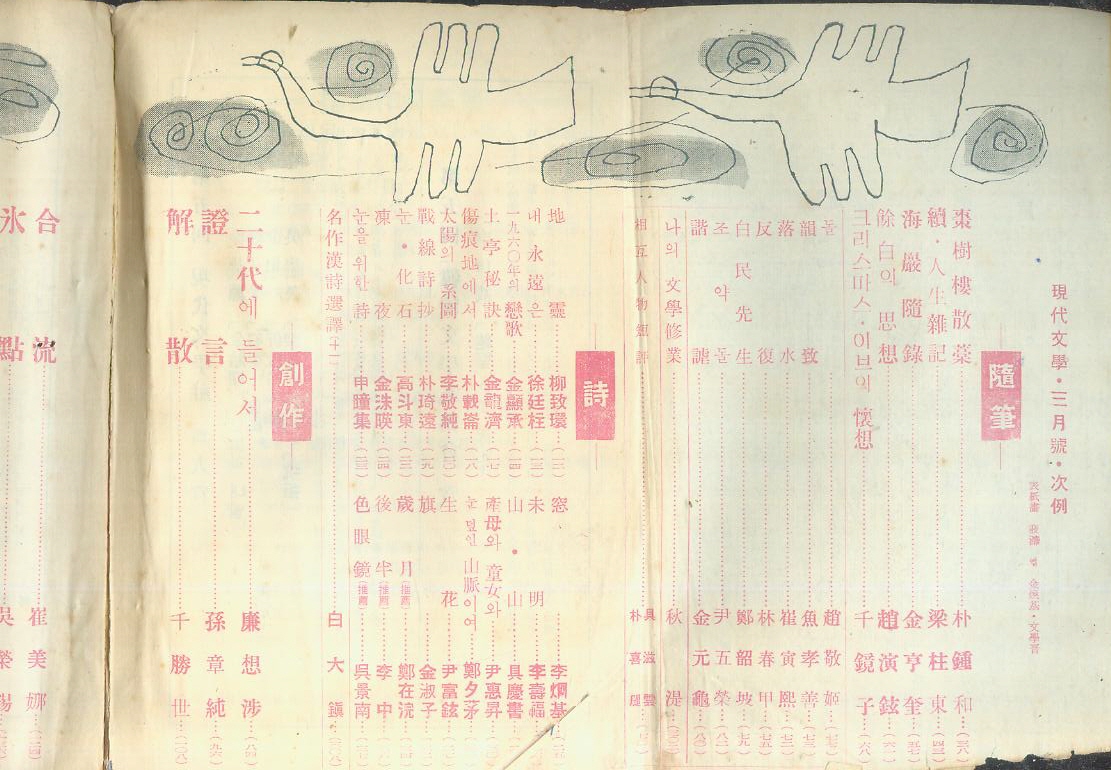 現代文學·三月號·次例
表紙畫
隨筆
棗樹樓散藁 朴鍾和
續·人生雜記 梁柱東
海嚴隨錄 金亨奎
餘白의 思想 趙演鉉
크리스마스·이브의 懷想 千鏡子
돌 趙敬姬
韻致 魚孝善
落水 崔寅熙
反復 林春甲
白民先生 鄭韶坡
조약돌 尹五榮
諧謔 金元龜
나의 文學修業 秋湜
相互人物 具滋雲 朴喜
詩
地靈 柳致環
窓 李烱基
내 永遠은 徐廷柱
未明 李壽福
一九六〇年의 戀歌 金顯承
山·山 具慶書
土亭秘訣 金龍濟
產母와 童女와 尹惠昇
傷痕地에서 朴載崙
눈 덮인 山脈이여 鄭夕茅
太陽의 系圖 李敬純
生花 尹富鉉
戰線詩抄 朴琦遠
旗 金淑子
눈·化石 高斗東
歲月(推薦) 鄭在浣
凍夜 金洙暎
後半(推薦) 李中
눈을 위한 詩 申瞳集
色眼鏡(推薦) 吳景南
名作漢詩選譯(十一) 白大鎭
創作
二十代에 들어서 廉想涉
證言 孫章純
解散 千勝世
合流 崔美娜
氷點 吳榮